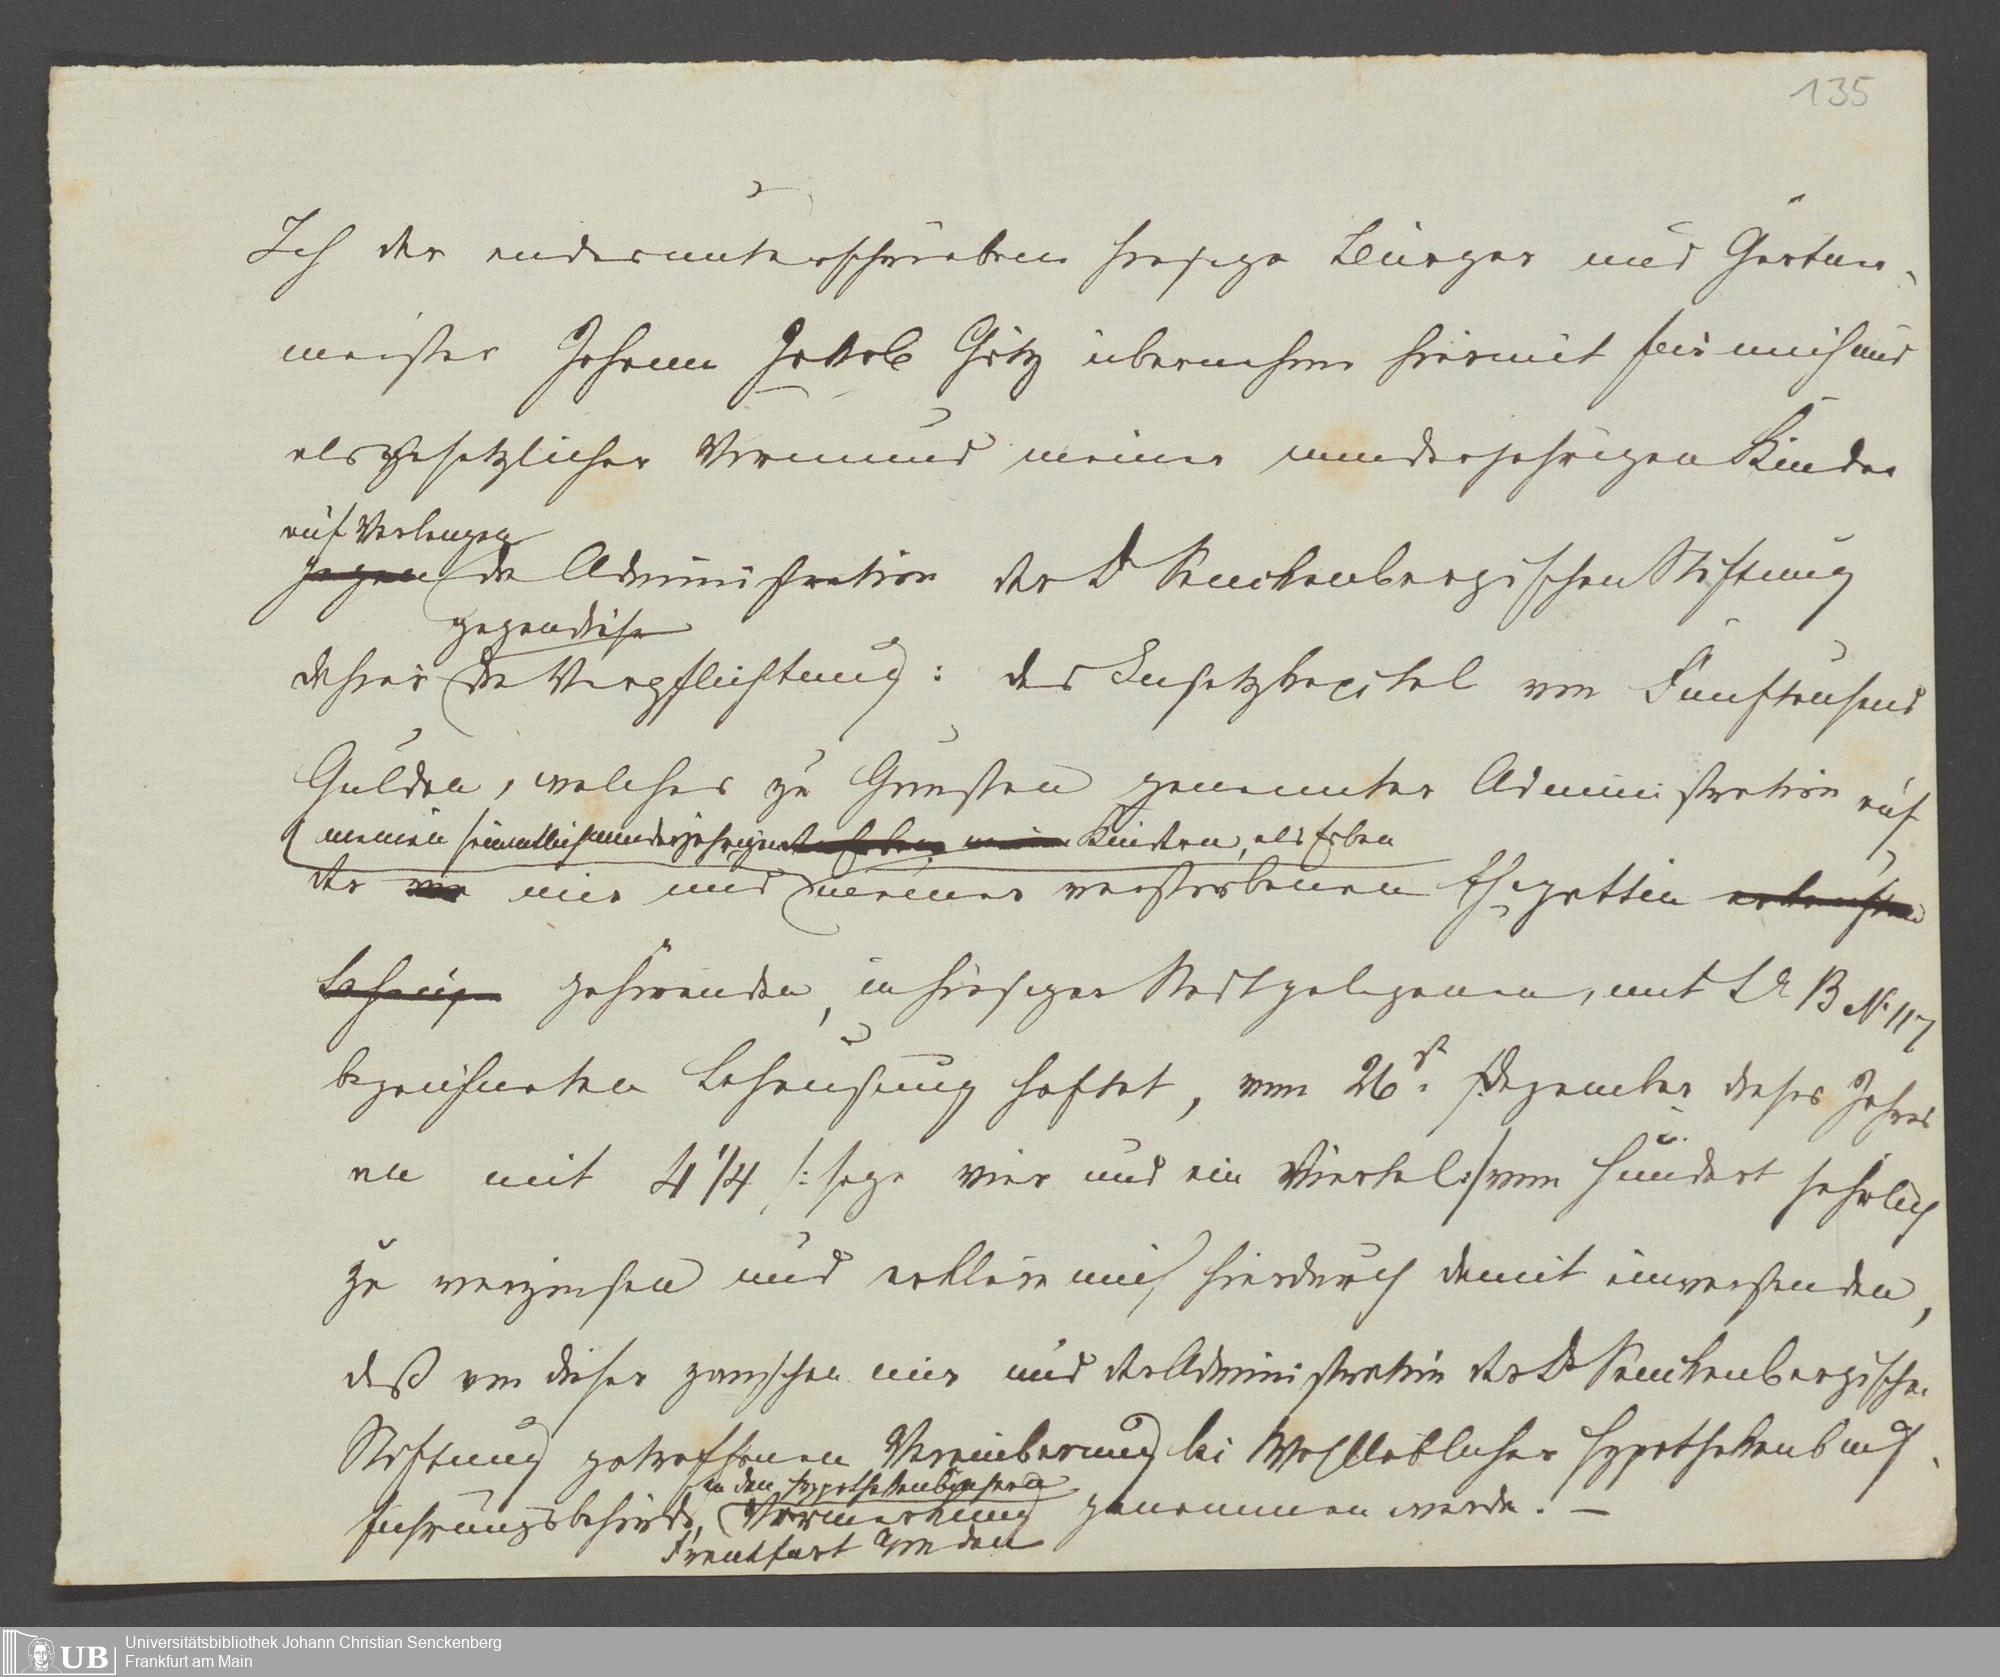 135
Ich der endesunterschriebene hiesige Bürger und Gärtner-
meister Johann Jakob Götz übernehme hiermit für mich und
als gesetzlicher Vormund meiner minderjährigen Kinder
auf Verlangen
gegen der Administration der Dr Senckenbergischen Stiftung
gegen diese
dahier die Verpflichtung: das Insatzkapital von Fünftausend
Gulden, welches zu Gunsten genannter Administration auf
meinen sämmtlich minderjährigen Kindern, als Erben
der mir und meiner verstorbenen Ehegattin erkauften
Behausg gehörenden, in hiesiger Stadt gelegenen, mit Lr B No 117
bezeichneten Behausung haftet, vom 26st Dezember dieses Jahres
an mit 4 1/4 /: sage vier und ein Viertel :/ vom Hundert jährlich
zu verzinsen und erkläre mich hierdurch damit einverstanden,
daß von dieser zwischen mir und der Administration der Dr Senckenbergischen
Stiftung getroffenen Vereinbarung bei Wohllöblicher Hypothekenbuch-
in den Hypothekenbüchern
führungsbehörde, Vormerkung genommen werde. —
Frankfurt a/m den
Universitätsbibliothek Johann Christian Senckenberg
Frankfurt am Main
UB